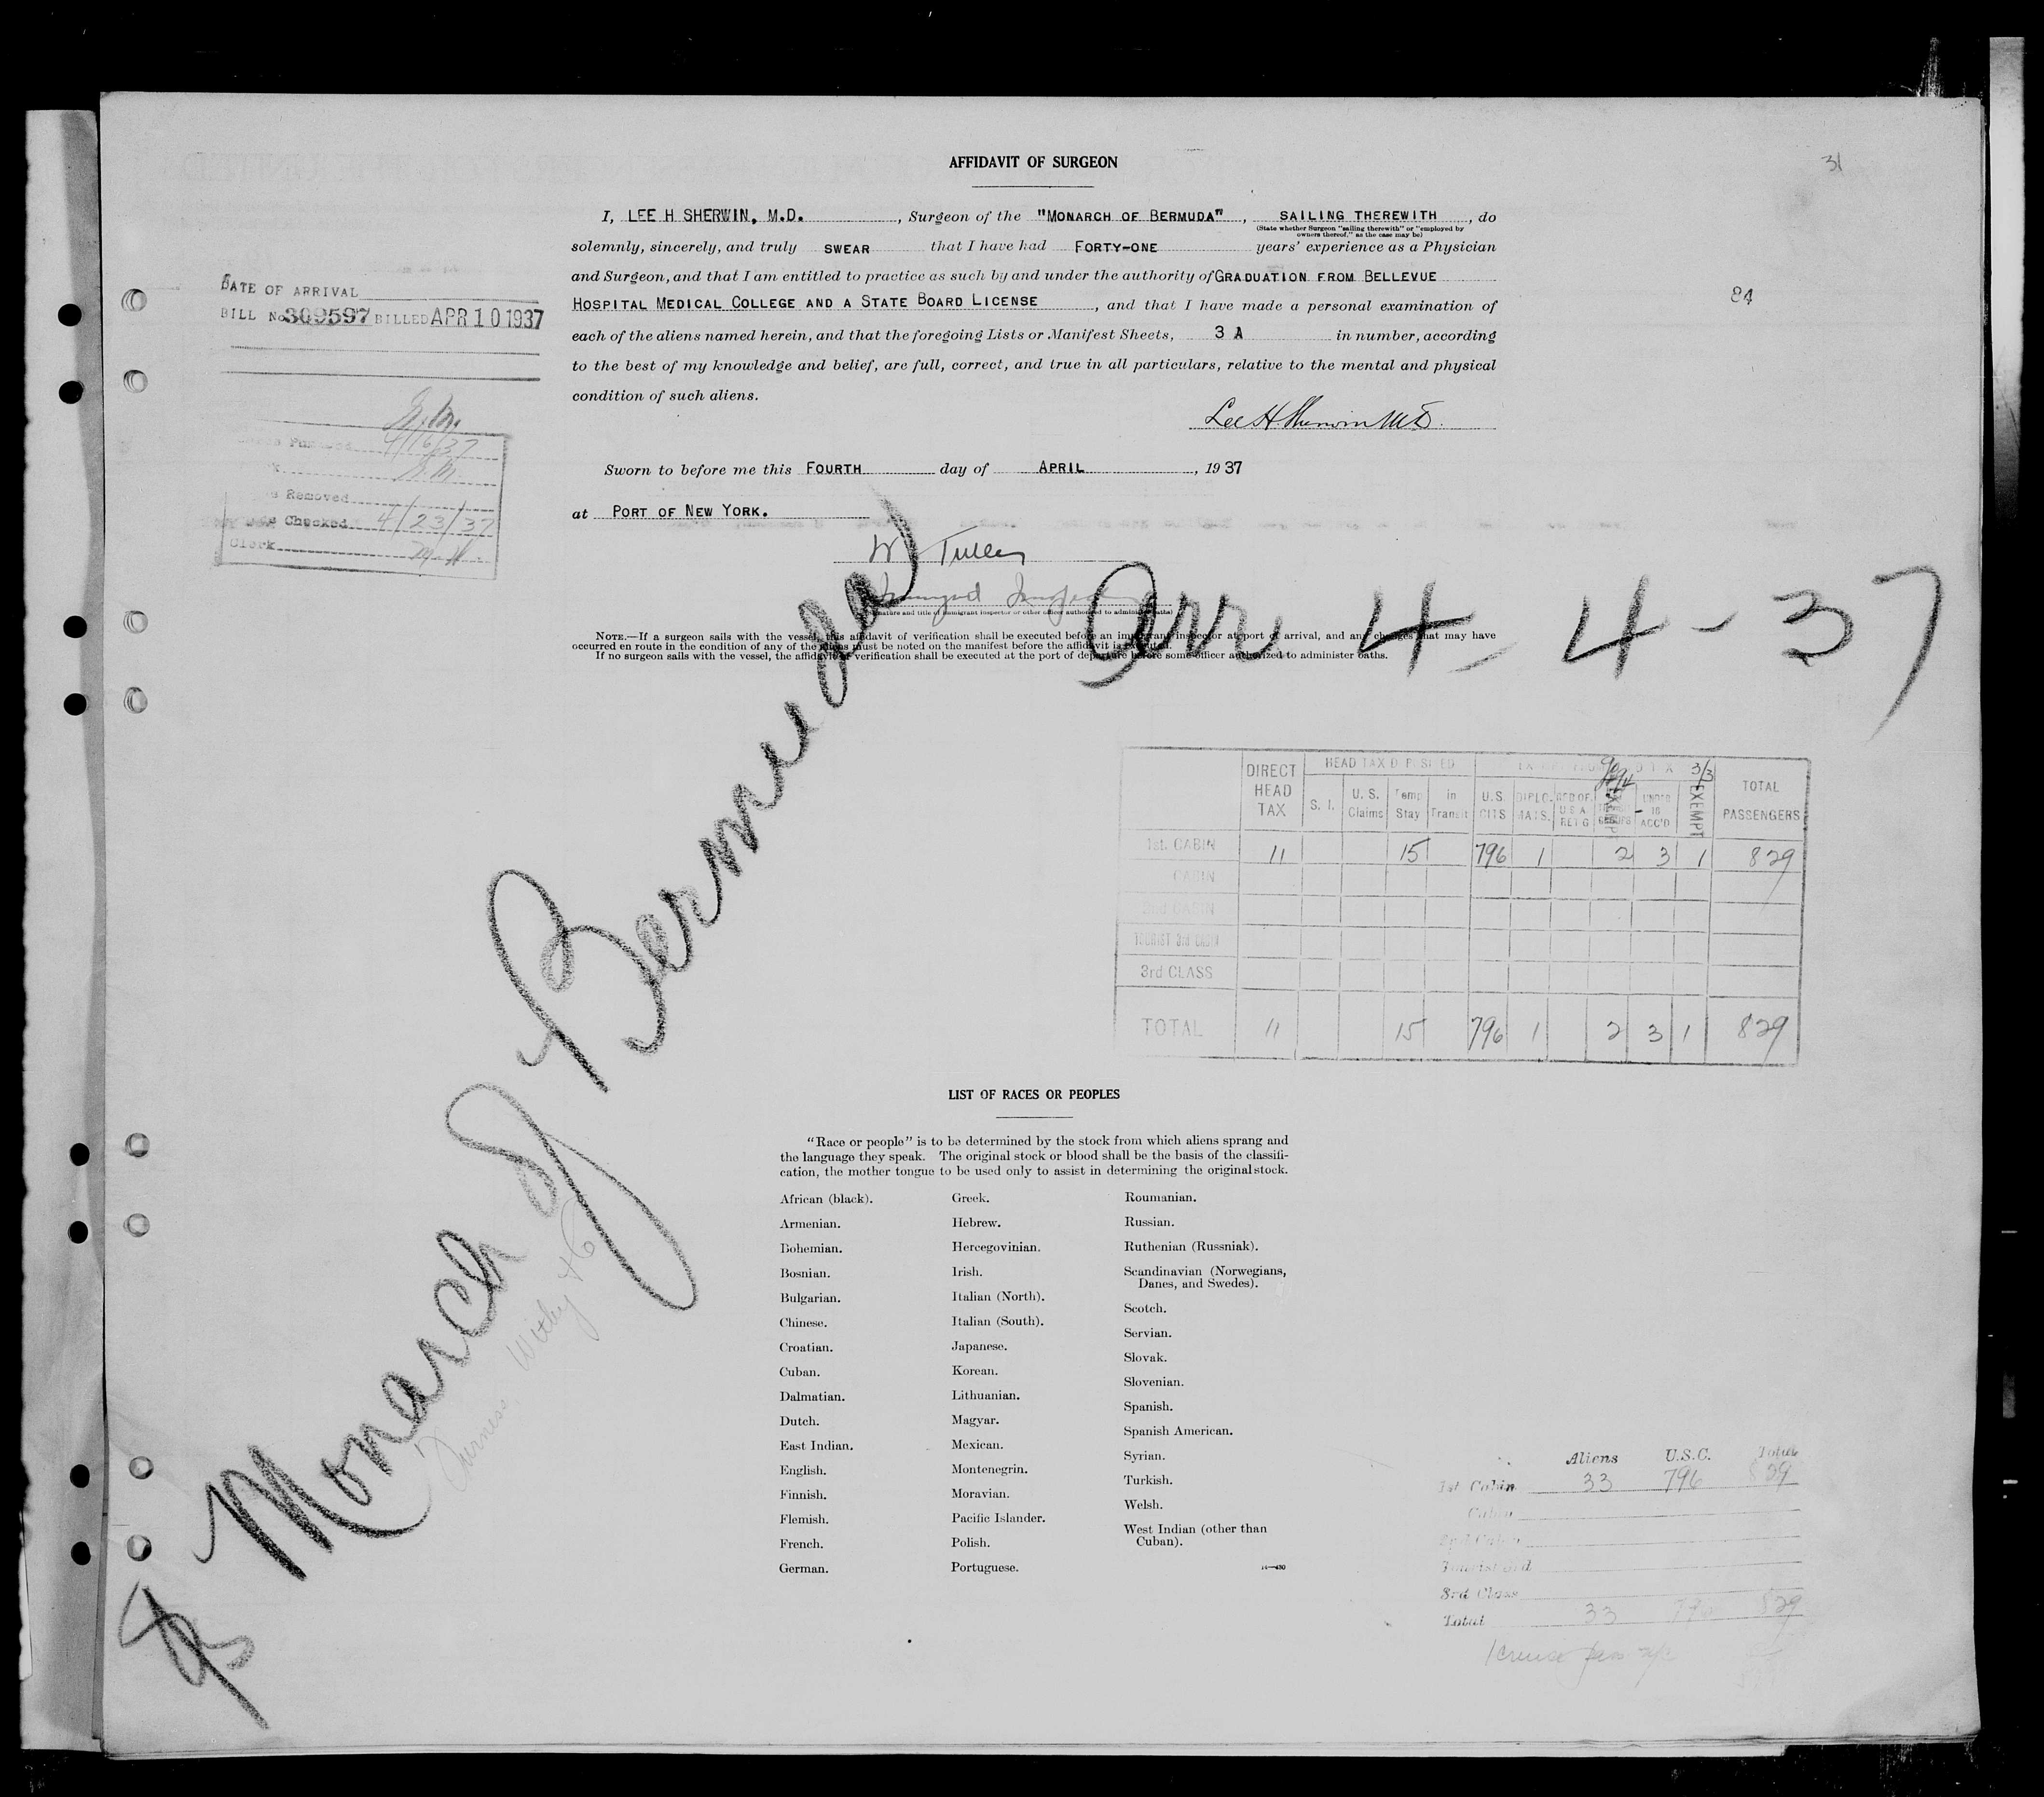 31
AFFIDAVIT OF SURGEON
I, LEE H SHERWIN, M.D. , Surgeon of the "MONARCH OF BERMUDA" , SAILING THEREWITH , do
(State whether Surgeon "sailing therewith" or "employed by
owners thereof," as the case may be)
solemnly, sincerely, and truly SWEAR that I have had FORTY-ONE years' experience as a Physician
and Surgeon, and that I am entitled to practice as such by and under the authority of GRADUATION FROM BELLEVUE
HOSPITAL MEDICAL COLLEGE AND A STATE BOARD LICENSE , and that I have made a personal examination of
each of the aliens named herein, and that the foregoing Lists or Manifest Sheets, 3 A in number, according
to the best of my knowledge and belief, are full, correct, and true in all particulars, relative to the mental and physical
condition of such aliens.
Lee H. Sherwin M.D.
Sworn to before me this FOURTH day of APRIL , 1937
at PORT OF NEW YORK.
W Tulley
(Signature and title of immigrant inspector or other officer authorized to administer oaths)
NOTE.—If a surgeon sails with the vessel, this affidavit of verification shall be executed before an immigrant inspector at port of arrival, and any changes that may have
occurred en route in the condition of any of the aliens must be noted on the manifest before the affidavit is executed.
If no surgeon sails with the vessel, the affidavit of verification shall be executed at the port of departure before some officer authorized to administer oaths.
DATE OF ARRIVAL
BILL No 309597 BILLED APR 10 1937
84
4/16/37
Removed
Checked 4/23/37
Clerk M.H.
Arr 4-4-37
Monarch of Bermuda
Furness Withy & Co
DIRECT HEAD TAX
HEAD TAX DEPOSITED
S. I.
U. S. Claims
Temp Stay
in Transit
U.S. CITS
DIPLO-MATS.
EXEMPT
UNDER 16 ACC'D
EXEMPT
3/3
TOTAL PASSENGERS
1st. CABIN 11 15 796 1 2 3 1 829
CABIN
2nd CABIN
TOURIST 3rd CABIN
3rd CLASS
TOTAL 11 15 796 1 2 3 1 829
LIST OF RACES OR PEOPLES
"Race or people" is to be determined by the stock from which aliens sprang and
the language they speak. The original stock or blood shall be the basis of the classifi-
cation, the mother tongue to be used only to assist in determining the original stock.
African (black).
Armenian.
Bohemian.
Bosnian.
Bulgarian.
Chinese.
Croatian.
Cuban.
Dalmatian.
Dutch.
East Indian.
English.
Finnish.
Flemish.
French.
German.
Greek.
Hebrew.
Hercegovinian.
Irish.
Italian (North).
Italian (South).
Japanese.
Korean.
Lithuanian.
Magyar.
Mexican.
Montenegrin.
Moravian.
Pacific Islander.
Polish.
Portuguese.
Roumanian.
Russian.
Ruthenian (Russniak).
Scandinavian (Norwegians,
Danes, and Swedes).
Scotch.
Servian.
Slovak.
Slovenian.
Spanish.
Spanish American.
Syrian.
Turkish.
Welsh.
West Indian (other than
Cuban).
14—430
Aliens U.S.C. Total
1st Cabin 33 796 829
Cabin
2nd Cabin
Tourist 3rd
3rd Class
Total 33 796 829